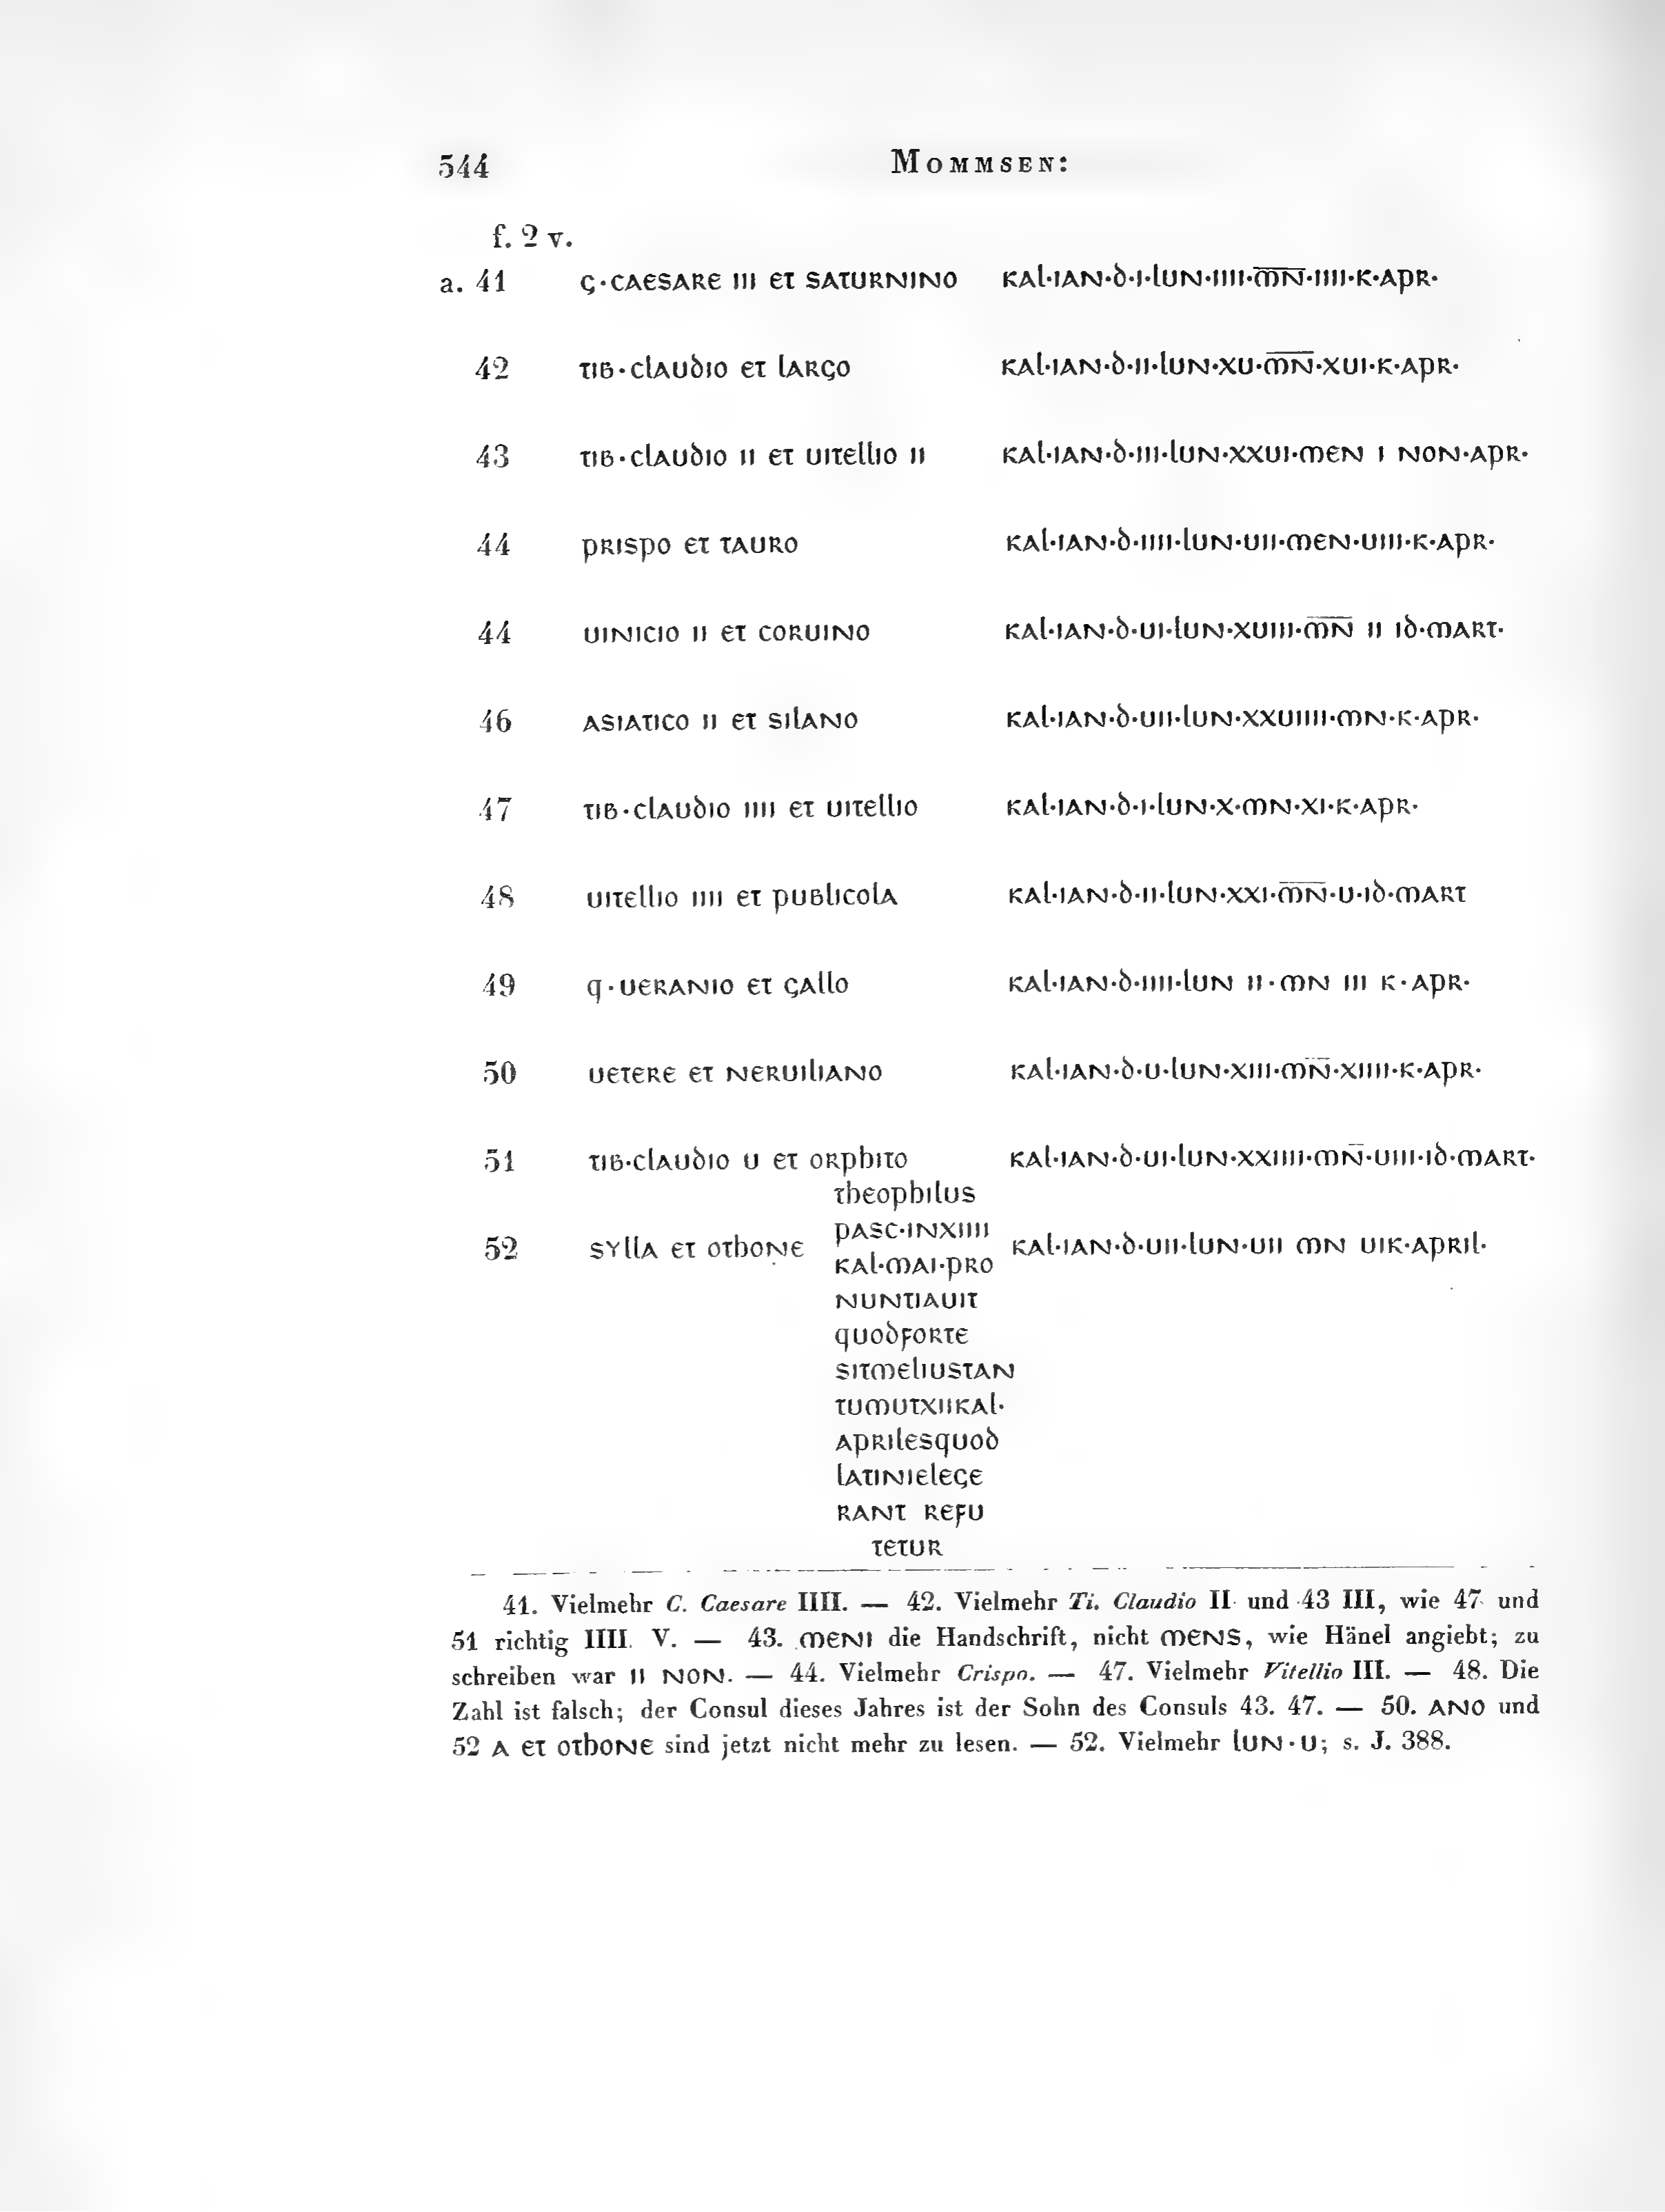 544 MOMMSEN:
f. 2 v.
a. 41 G·CAESARE III ET SATURNINO KAL·IAN·D·I·LUN·IIII·M̅N̅·IIII·K·APR·
42 TIB·CLAUDIO ET LARGO KAL·IAN·D·II·LUN·XU·M̅N̅·XUI·K·APR·
43 TIB·CLAUDIO II ET UITELLIO II KAL·IAN·D·III·LUN·XXUI·MEN I NON·APR·
44 PRISPO ET TAURO KAL·IAN·D·IIII·LUN·UII·MEN·UIII·K·APR·
44 UINICIO II ET CORUINO KAL·IAN·D·UI·LUN·XUIII·M̅N̅ II ID·MART·
46 ASIATICO II ET SILANO KAL·IAN·D·UII·LUN·XXUIIII·MN·K·APR·
47 TIB·CLAUDIO IIII ET UITELLIO KAL·IAN·D·I·LUN·X·MN·XI·K·APR·
48 UITELLIO IIII ET PUBLICOLA KAL·IAN·D·II·LUN·XXI·M̅N̅·U·ID·MART
49 Q·UERANIO ET GALLO KAL·IAN·D·IIII·LUN II·MN III K·APR·
50 UETERE ET NERUILIANO KAL·IAN·D·U·LUN·XIII·M̅N̅·XIIII·K·APR·
51 TIB·CLAUDIO U ET ORPHITO KAL·IAN·D·UI·LUN·XXIIII·MN̅·UIII·ID·MART·
THEOPHILUS
PASC·INXIIII
52 SYLLA ET OTHONE KAL·IAN·D·UII·LUN·UII MN UIK·APRIL·
KAL·MAI·PRO
NUNTIAUIT
QUODFORTE
SITMELIUSTAN
TUMUTXIIKAL·
APRILESQUOD
LATINIELEGE
RANT REFU
TETUR
41. Vielmehr C. Caesare IIII. — 42. Vielmehr Ti. Claudio II und 43 III, wie 47 und
51 richtig IIII. V. — 43. MENI die Handschrift, nicht MENS, wie Hänel angiebt; zu
schreiben war II NON. — 44. Vielmehr Crispo. — 47. Vielmehr Vitellio III. — 48. Die
Zahl ist falsch; der Consul dieses Jahres ist der Sohn des Consuls 43. 47. — 50. ANO und
52 A ET OTHONE sind jetzt nicht mehr zu lesen. — 52. Vielmehr LUN·U; s. J. 388.